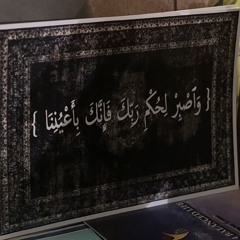 { وَاصْبِرْ لِحُكْمِ رَبِّكَ فَإِنَّكَ بِأَعْيُنِنَا }